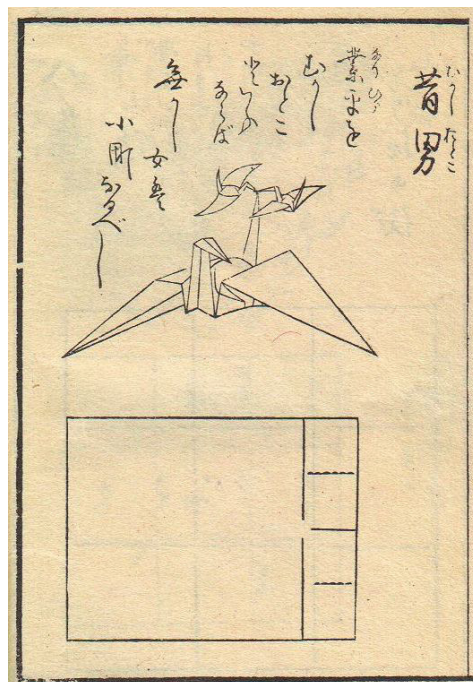 昔男
むかしおとこ
業平を
なりひら
むかし
おとこ
といふ
ならば
無かし
女
小町なるべし